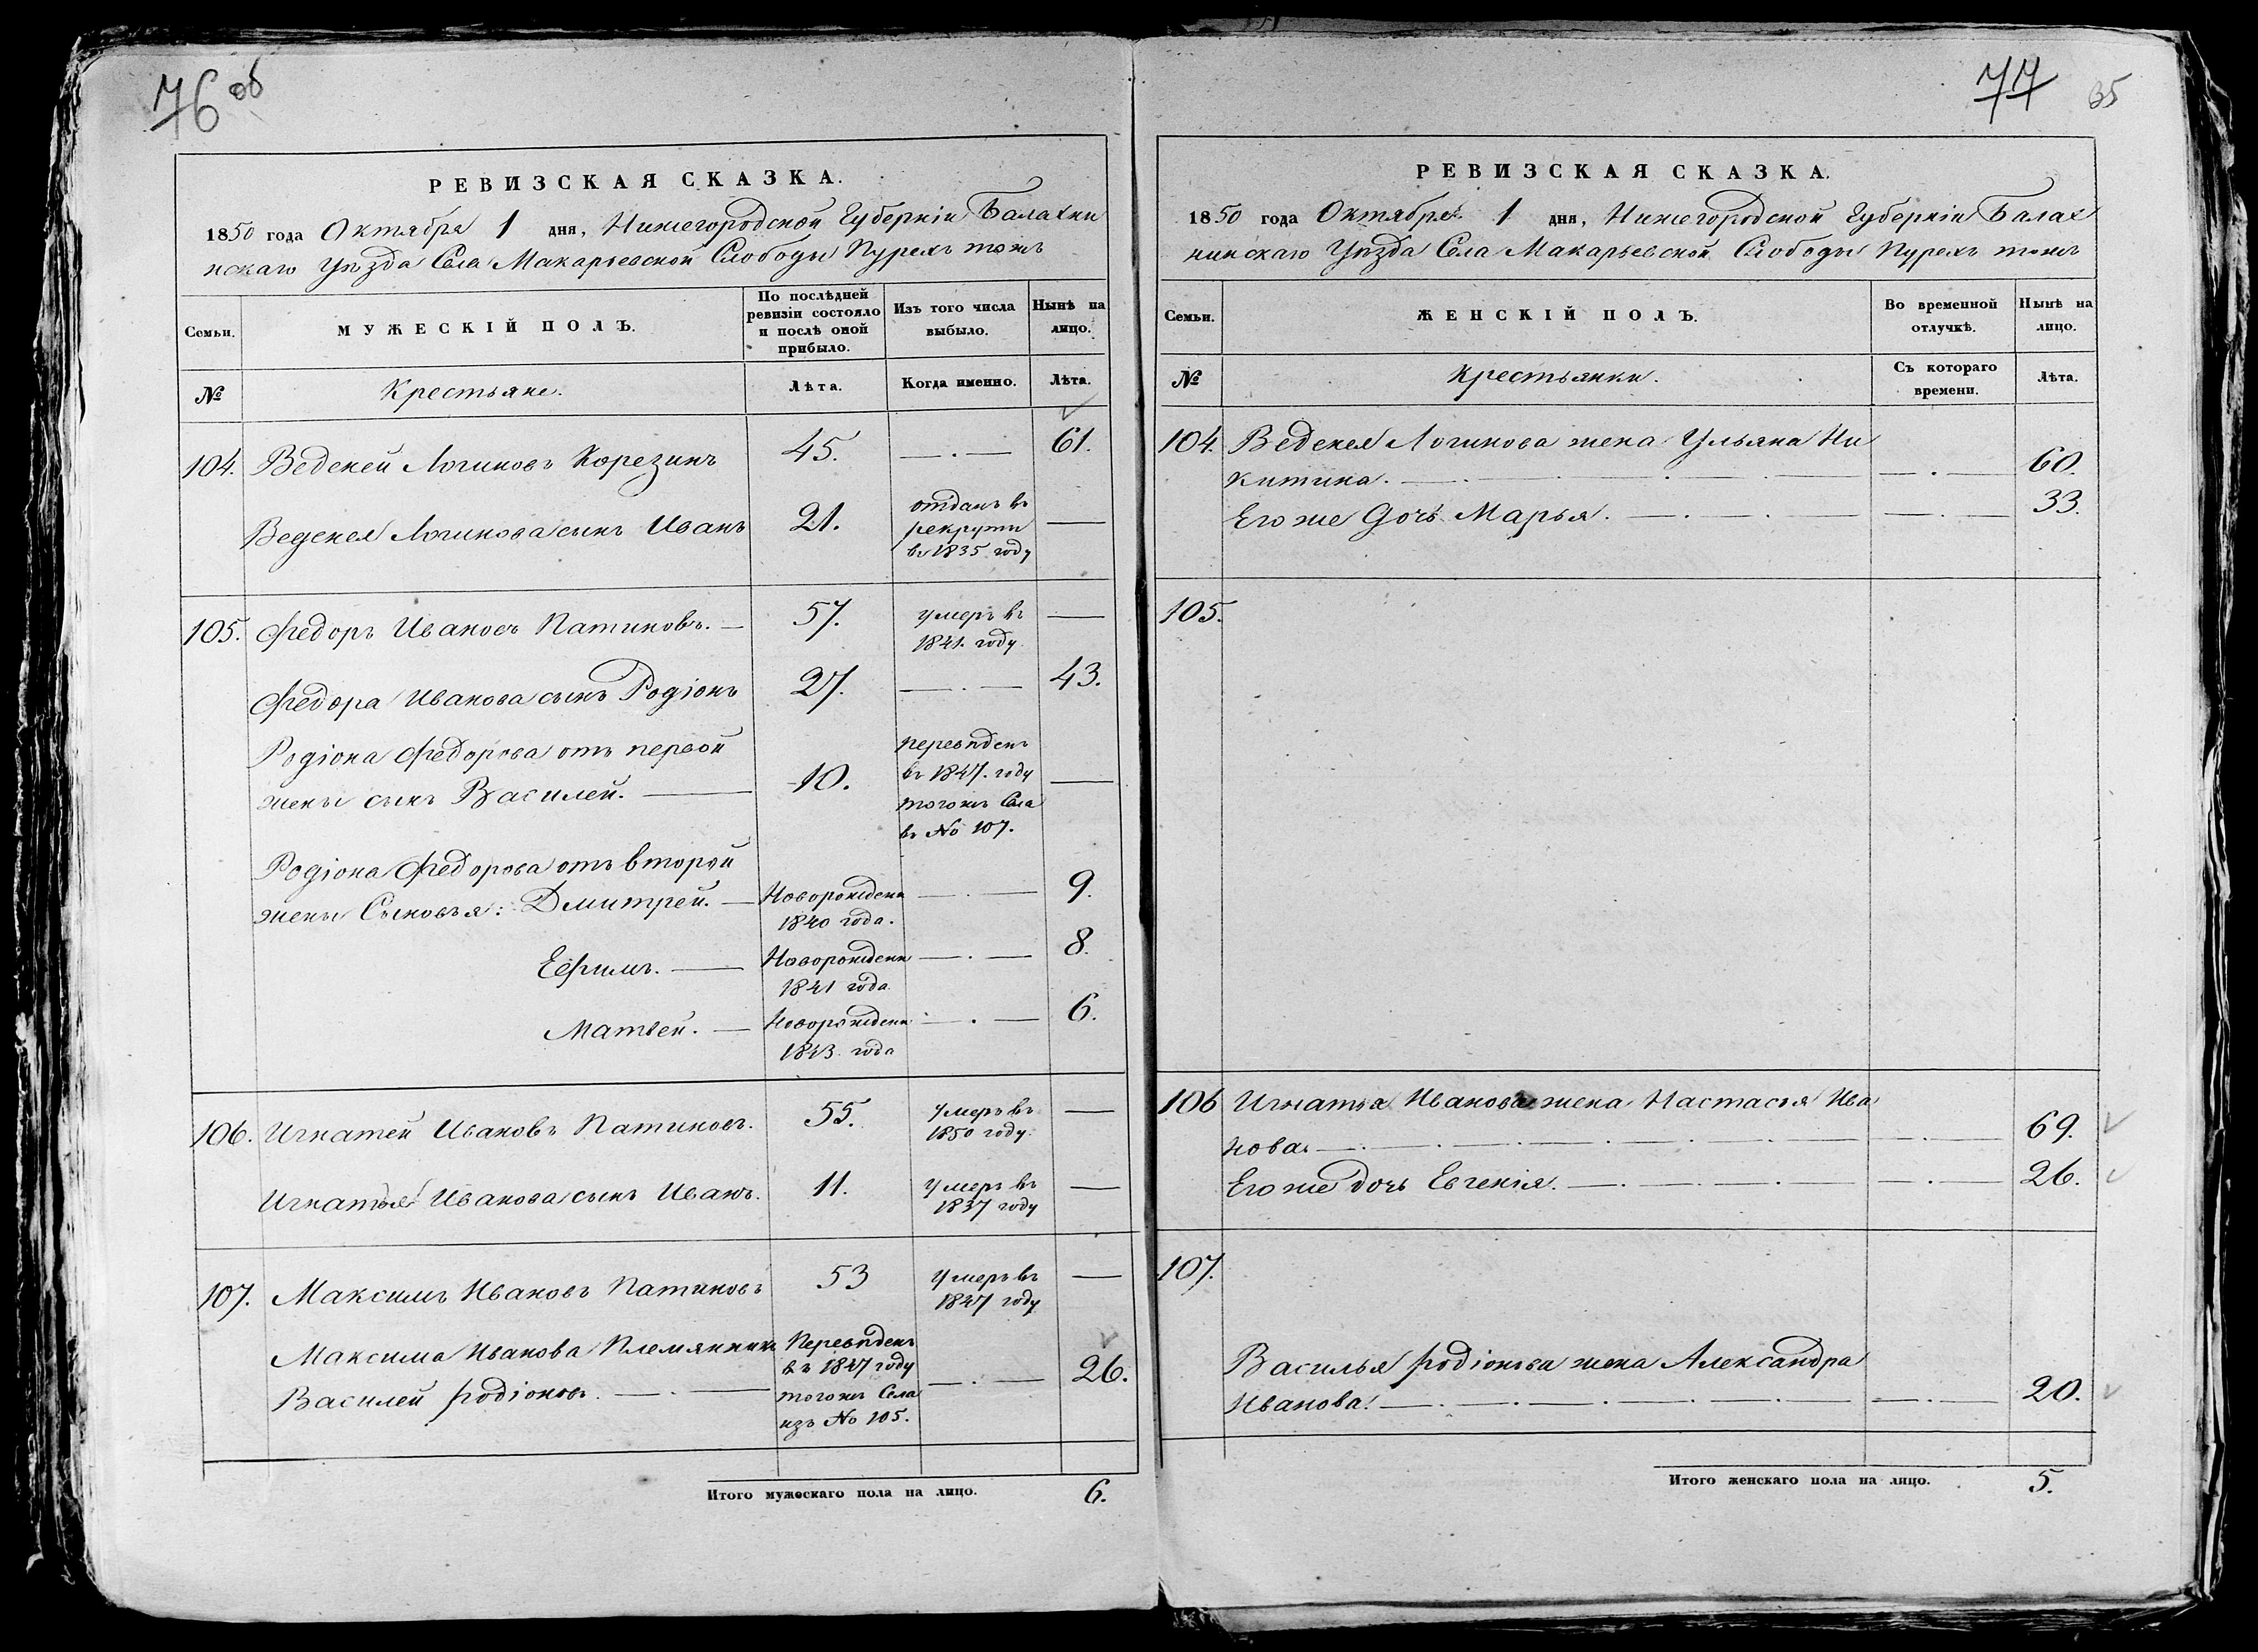 76 об
РЕВИЗСКАЯ СКАЗКА.
1850 года Октября 1 дня, Нижегородской Губерніи Балахни
нскаго Уѣзда Села Макарьевской Слободы Пурехъ тожъ
Семьи.
МУЖЕСКІЙ ПОЛЪ.
По послѣдней
ревизіи состояло
и послѣ оной
прибыло.
Изъ того числа
выбыло.
Нынѣ на
лицо.
№
Крестьяне.
Лѣта.
Когда именно.
Лѣта.
104. Веденей Логиновъ Корезинъ 45. 61.
Веденея Логинова сынъ Иванъ 21.
отданъ въ
рекруты
въ 1835 году
105. Федоръ Ивановъ Патиновъ. 57.
умеръ въ
1841. году
Федора Иванова сынъ Родіонъ 27. 43.
Родіона Федорова отъ первой
жены сынъ Василей. 10.
переведенъ
въ 1847. году
тогожъ Села
въ № 107.
Родіона Федорова отъ второй
жены Сыновья: Дмитрей. Новорожденн 9.
1840 года.
Ефимъ. Новорожденн 8.
1841 года
Матвей. Новорожденн 6.
1843 года
106. Игнатей Ивановъ Патиновъ. 55.
Умеръ въ
1850 году.
Игнатья Иванова сынъ Иванъ. 11.
Умеръ въ
1837 году
107. Максимъ Ивановъ Патиновъ 53
Умеръ въ
1847 году
Максима Иванова Племянникъ
Василей Родіоновъ.
Переведенъ
въ 1847 году
тогожъ Села
изъ № 105.
26.
Итого мужескаго пола на лицо. 6.
77 35
РЕВИЗСКАЯ СКАЗКА.
1850 года Октября 1 дня, Нижегородской Губерніи Балах
нинскаго Уѣзда Села Макарьевской Слободы Пурехъ тожъ
Семьи.
ЖЕНСКІЙ ПОЛЪ.
Во временной
отлучкѣ.
Нынѣ на
лицо.
№
Крестьянки.
Съ котораго
времени.
Лѣта.
104. Веденея Логинова жена Ульяна Ни
китина. 60.
Его же Дочь Марья. 33.
105.
106 Игнатья Иванова жена Настасья Ива
нова 69.
Его же дочь Евгенія. 26.
107.
Василья Родіонова жена Александра
Иванова. 20.
Итого женскаго пола на лицо. 5.